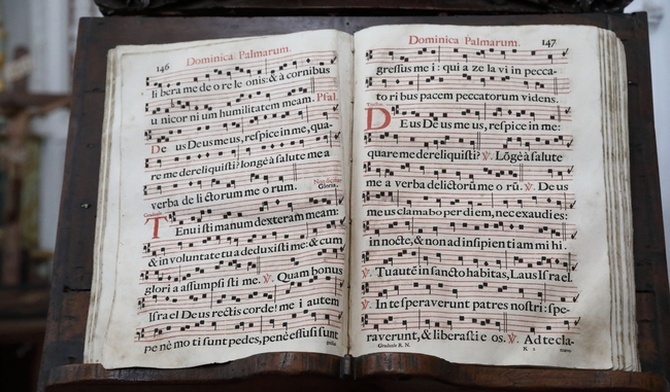 146
Dominica Palmarum.
li bera me de o re le onis: & à cornibus
u nicor ni um humilitatem meam. Psal.
De us Deus meus, respice in me, qua-
re me dereliquisti? longè à salute mea
verba de li ctorum me o rum.
Gloria.
Tenui sti manum dexteram meam:
& in voluntate tu a deduxisti me: & cum
glori a assumpsi sti me. ℣. Quam bonus
Israel Deus rectis corde! me i autem
penè mo ti sunt pedes, penè effusi sunt
Dominica Palmarum.
147
gressus me i: qui a ze la vi in pecca-
to ri bus pacem peccatorum videns.
Tractus
DEus Deus meus, respice in me:
quare me dereliquisti? ℣. Lõgè à salute
me a verba delictorũ me o rũ. ℣. De us
meus clamabo per diem, nec exaudi es:
in nocte, & non ad insipien ti am mi hi.
℣. Tu autẽ in sancto habitas, Laus Israel.
℣. In te speraverunt patres nostri: spe-
raverunt, & liberasti e os. ℣. Ad te cla-
Graduale R. N.